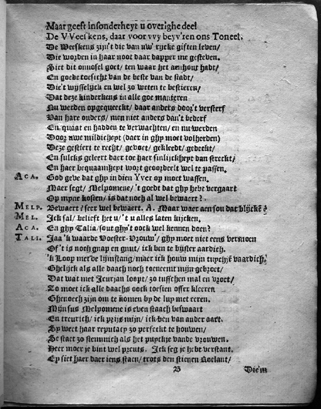 Maar geest insonderheyt u overighe deel
De VVeeskens, daar voor vvy bevy'ren ons Toneel.
De Weeskens zijn't die van uw' rijcke giften leven/
Die worden in haar noot daar dapper me ghesteven.
Siet dit onnosel goet/ ten waar het armhuys hadt/
En goede toesicht van de beste van de stadt/
Die 't wijsselijck en wel zo weten te bestieren/
Dat deze kinderkens in alle goe manieren
Nu werden opgequeeckt/ daar anders door 't versterf
Van hare ouders/ men niet anders dan't bederf
En quaat en hadden te verwachten/ en nu werden
Door uwe mildicheyt (daer in ghy moet volherden)
Deze gestiert te recht/ gevoet/ gekleedt/ gedeckt/
En sulcks geleert daer toe haer sinlijckheyt dan streckt/
En haer bequaamheyt wort geoordeelt wel te passen.
ACA. God geve dat ghy in desen Yver op moet wassen.
Maer segt/ Melpomene/ 't goedt dat ghy hebt vergaart
Op mijne kosten/ is dat noch al wel bewaert?
MELP. Bewaert/ seer wel bewaert. A. Maar waer aen sou dat blijcke?
MEL. Ick sal/ belieft het u/ 't u alles laten kijcken.
ACA. En ghy Talia/ sout ghy't oock wel kennen doen?
TALI. Jaa 'k waarde Voester-Vrouw/ ghy moet niet eens vermoen
Of 't is noch gnap en gnut/ ick ben te bijster aardich/
'k Loop mer've lijnstang/ maer ick houw mijn tuychje vaardich/
Ghelijck als alle daach noch toeneemt mijn gebroet/
Dat wat met Jeurjan loopt/ zo tusschen mal en vroet/
Zo moet ick alle daachs oock toesien offer kleeren
Ghenoech zijn om te komen by de luy met eeren.
Mijn sus Melpomene is even staach bewaart
En treurich/ ick prijs mijn/ ick ben van ander aart.
Sy weet haar reputacy zo perfeckt te houwen/
Se staat zo stemmich als het puyckje vande vrouwen.
Heer moer je bint wel preuts. Ick seg je hebt verstant.
Ey siet haer daer iens staen/ trots den stieven Roelant/
B Die'm